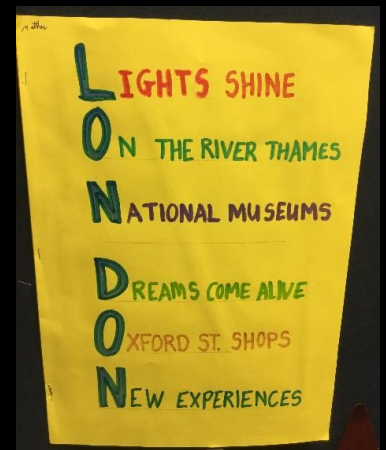 LIGHTS SHINE
ON THE RIVER THAMES
NATIONAL MUSEUMS
DREAMS COME ALIVE
OXFORD ST. SHOPS
NEW EXPERIENCES